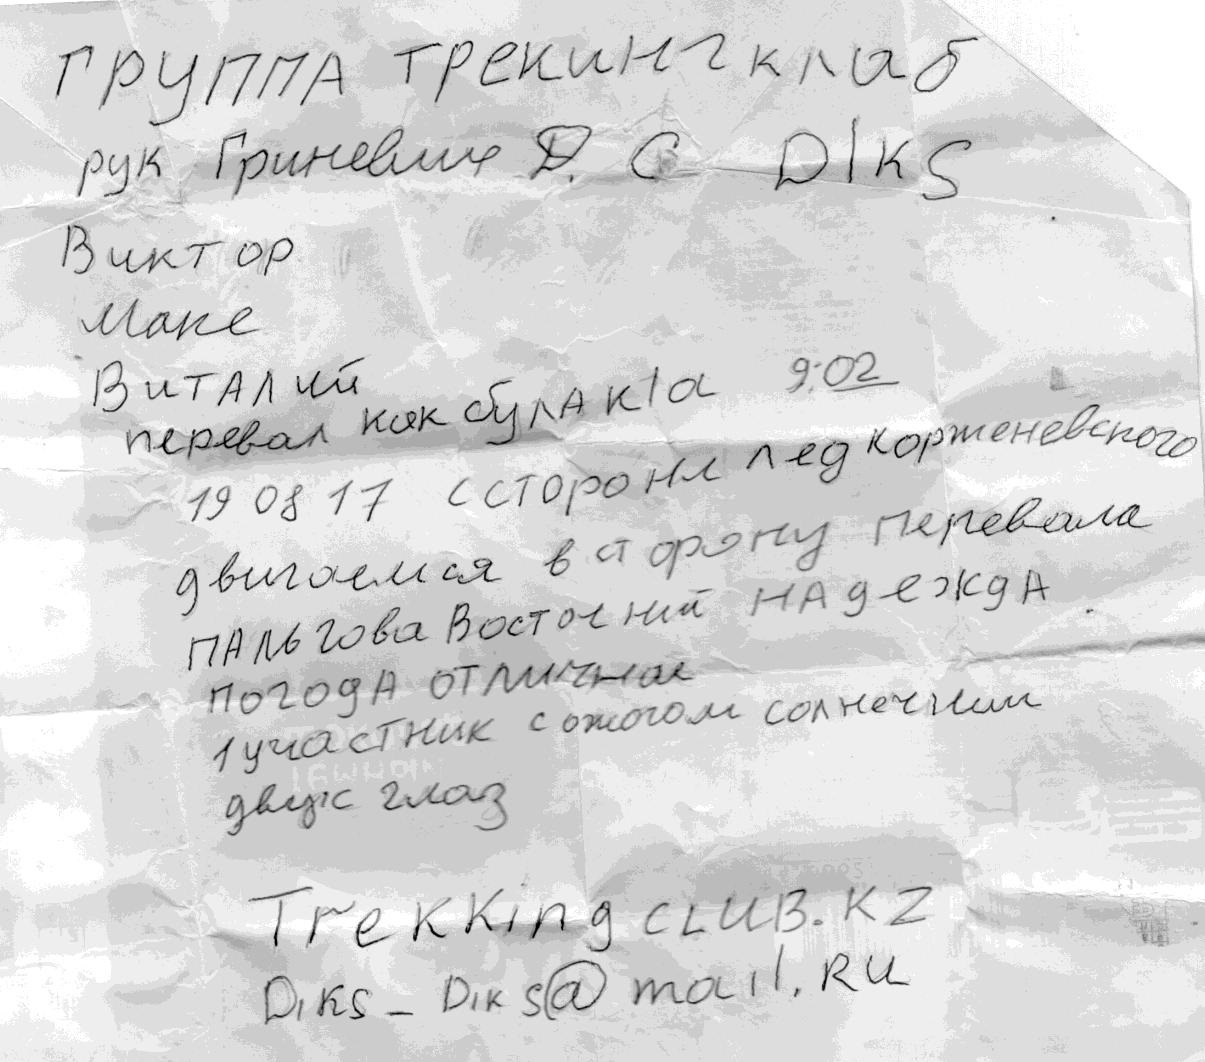 ГРУППА ТРЕКИНГ клаб
рук Гриневич Д. С DIKS
Виктор
Макс
ВИТАЛИЙ
перевал как булак 1а 9:02
19 08 17 с стороны лед корженевского
двигаемся в сторону перевала
ПАЛЬГОВА Восточный НАДЕЖДА.
ПОГОДА ОТЛИЧНАЯ
1 участник с ожогом солнечным
двух глаз
Trekking CLUB.KZ
DIKS_DIKS@mail.RU